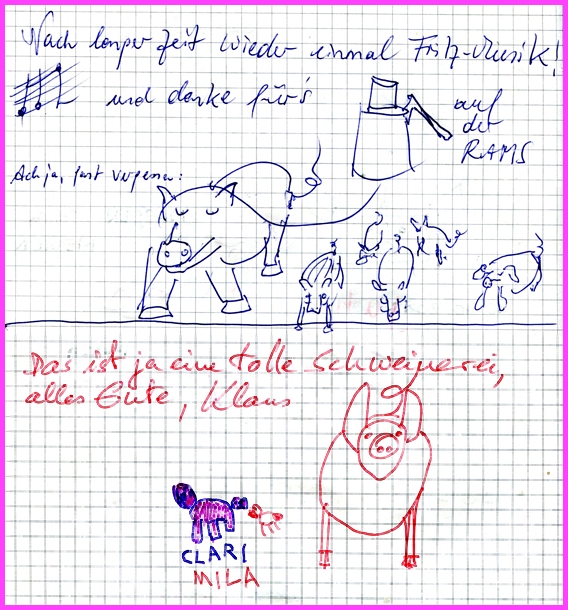 Nach langer Zeit wieder einmal Fritz-Musik!
und danke für's
auf
der
RAMS
Ach ja, fast vergessen:
Das ist ja eine tolle Schweinerei,
alles Gute, Klaus
CLARI
MILA